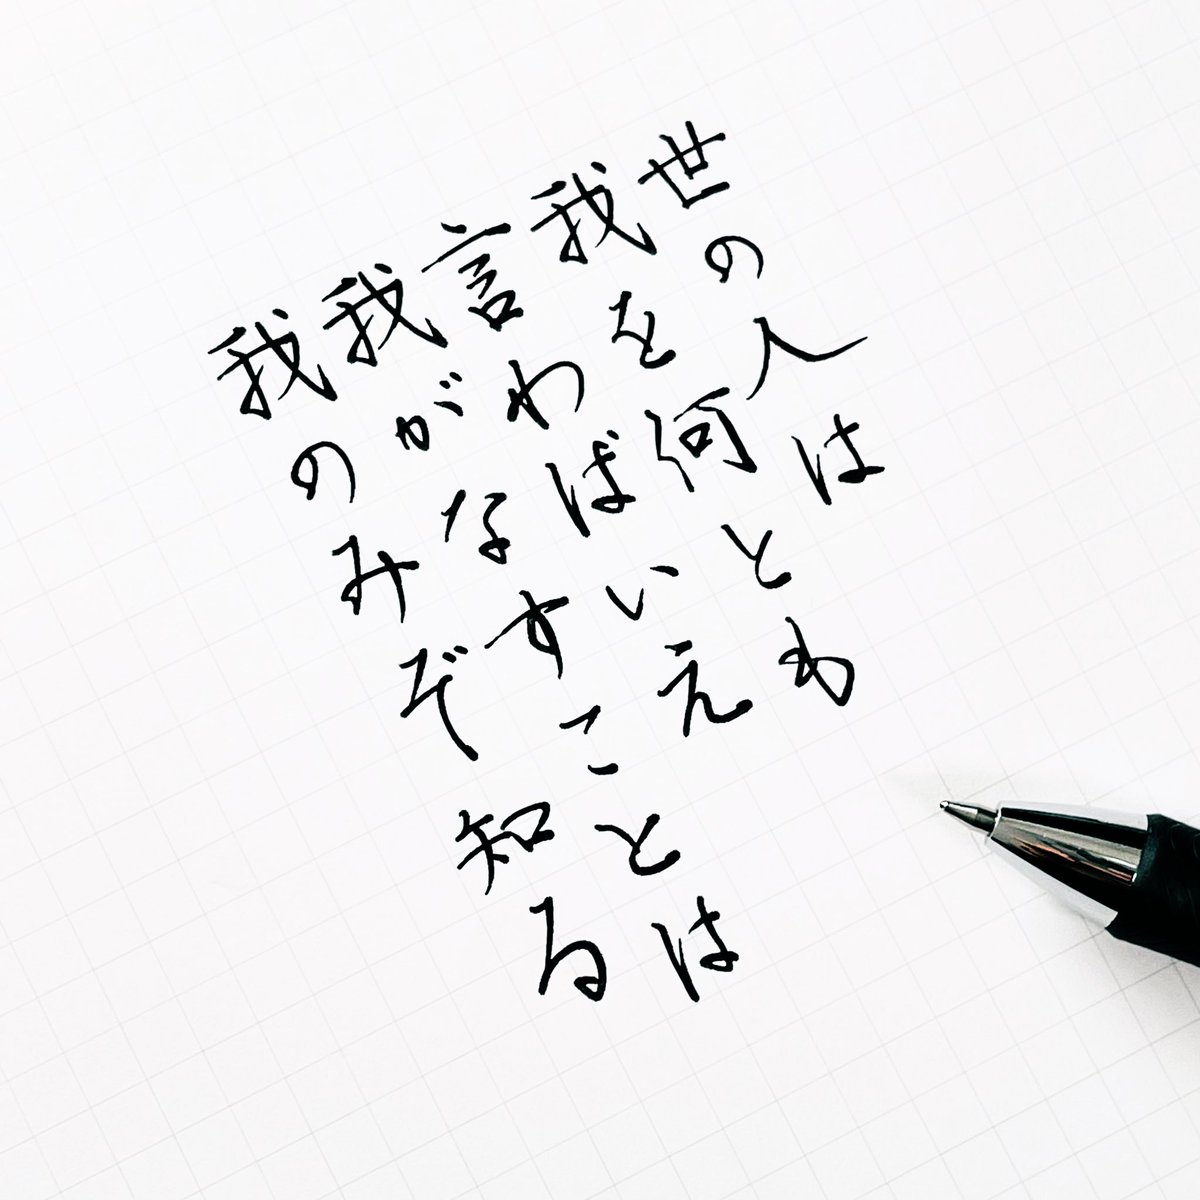 世の人は
我を何とも
言わばいえ
我がなすことは
我のみぞ知る